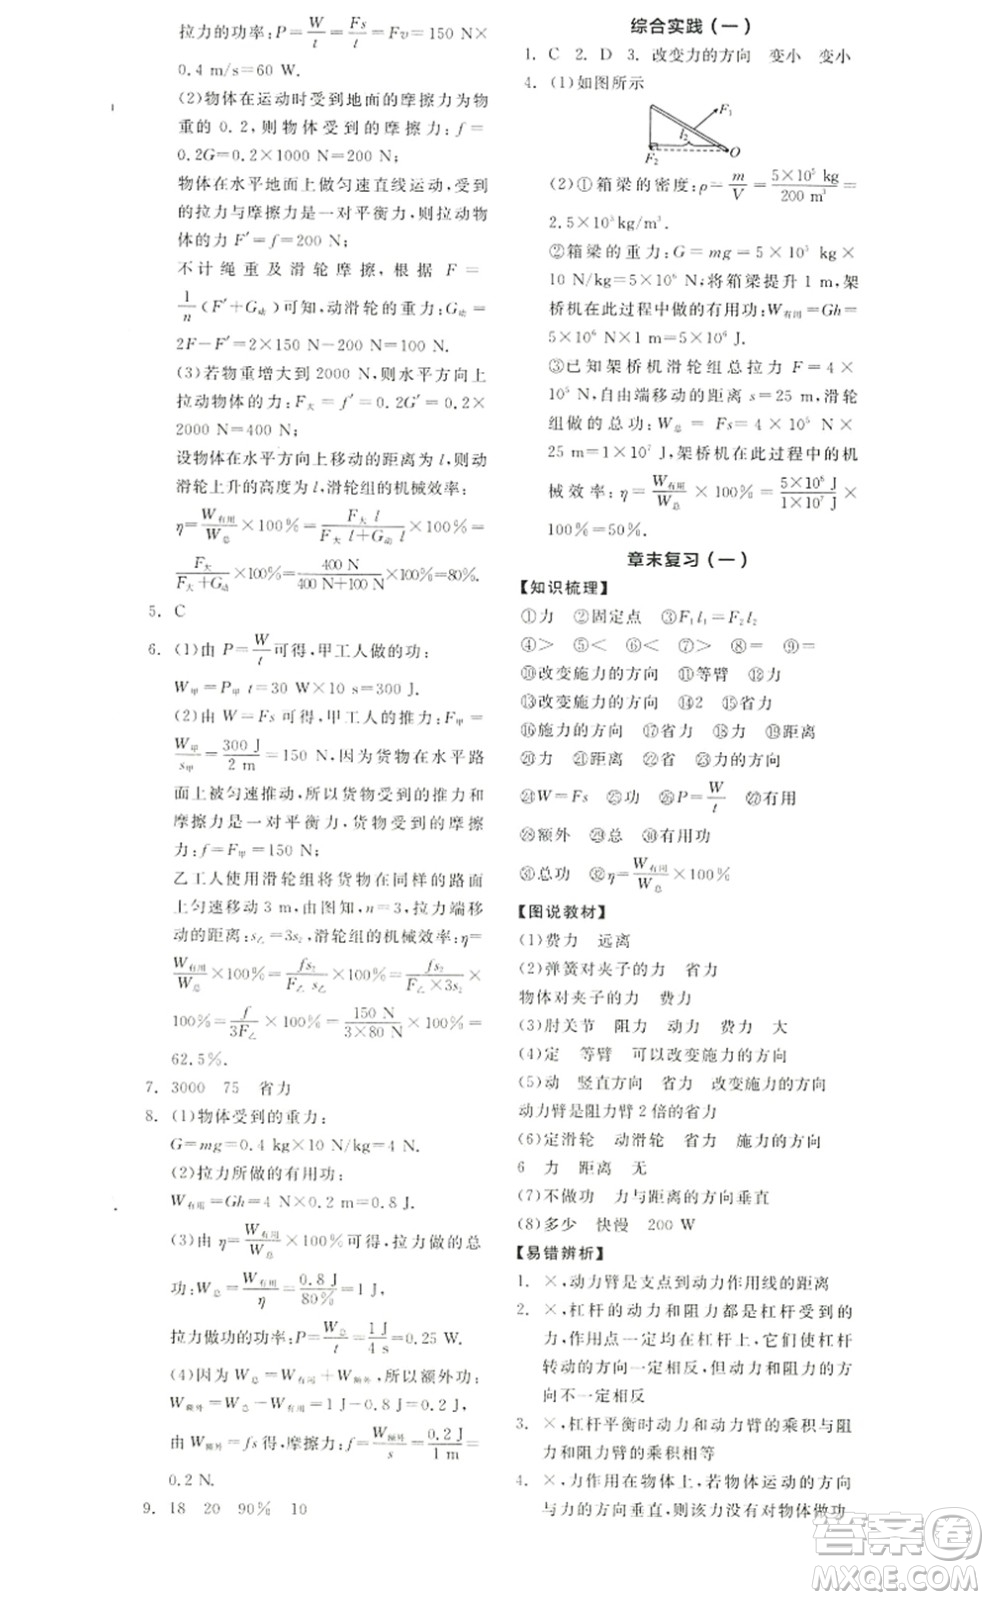 拉力的功率:P=W/t=Fs/t=Fv=150 N×
0.4 m/s=60 W.
(2)物体在运动时受到地面的摩擦力为物
重的 0.2,则物体受到的摩擦力:f=
0.2G=0.2×1000 N=200 N;
物体在水平地面上做匀速直线运动,受到
的拉力与摩擦力是一对平衡力,则拉动物
体的力 F′=f=200 N;
不计绳重及滑轮摩擦,根据 F=
1/n(F′+G动)可知,动滑轮的重力:G动=
2F-F′=2×150 N-200 N=100 N.
(3)若物重增大到 2000 N,则水平方向上
拉动物体的力:F大=f′=0.2G′=0.2×
2000 N=400 N;
设物体在水平方向上移动的距离为 l,则动
滑轮上升的高度为 l,滑轮组的机械效率:
η=W有用/W总×100%=F大 l/(F大 l+G动 l)×100%=
F大/(F大+G动)×100%=400 N/(400 N+100 N)×100%=80%.
5. C
6. (1)由 P=W/t可得,甲工人做的功:
W甲=P甲 t=30 W×10 s=300 J.
(2)由 W=Fs 可得,甲工人的推力:F甲=
W甲/s甲=300 J/2 m=150 N,因为货物在水平路
面上被匀速推动,所以货物受到的推力和
摩擦力是一对平衡力,货物受到的摩擦
力:f=F甲=150 N;
乙工人使用滑轮组将货物在同样的路面
上匀速移动 3 m,由图知,n=3,拉力端移
动的距离:s乙=3s2,滑轮组的机械效率:η=
W有用/W总×100%=fs2/(F乙 s乙)×100%=fs2/(F乙×3s2)×
100%=f/3F乙×100%=150 N/(3×80 N)×100%=
62.5%.
7. 3000 75 省力
8. (1)物体受到的重力:
G=mg=0.4 kg×10 N/kg=4 N.
(2)拉力所做的有用功:
W有用=Gh=4 N×0.2 m=0.8 J.
(3)由 η=W有用/W总×100%可得,拉力做的总
功:W总=W有用/η=0.8 J/80%=1 J,
拉力做功的功率:P=W总/t=1 J/4 s=0.25 W.
(4)因为 W总=W有用+W额外,所以额外功:
W额外=W总-W有用=1 J-0.8 J=0.2 J,
由 W额外=fs 可得,摩擦力:f=W额外/s=0.2 J/1 m=
0.2 N.
9. 18 20 90% 10
综合实践(一)
1. C 2. D 3. 改变力的方向 变小 变小
4. (1)如图所示
F1
l2
F2 O
(2)①箱梁的密度:ρ=m/V=5×10⁵ kg/200 m³=
2.5×10³kg/m³.
②箱梁的重力:G=mg=5×10⁵ kg×
10 N/kg=5×10⁶ N;将箱梁提升 1 m,架
桥机在此过程中做的有用功:W有用=Gh=
5×10⁶ N×1 m=5×10⁶ J.
③已知架桥机滑轮组总拉力 F=4×
10⁵ N,自由端移动的距离 s=25 m,滑轮
组做的总功:W总=Fs=4×10⁵ N×
25 m=1×10⁷ J,架桥机在此过程中的机
械效率:η=W有用/W总×100%=5×10⁶ J/1×10⁷ J×
100%=50%.
章末复习(一)
【知识梳理】
①力 ②固定点 ③F1l1=F2l2
④> ⑤< ⑥< ⑦> ⑧= ⑨=
⑩改变施力的方向 ⑪等臂 ⑫力
⑬改变施力的方向 ⑭2 ⑮省力
⑯施力的方向 ⑰省力 ⑱距离 ⑲功
⑳力 ㉑距离 ㉒省 ㉓力的方向
㉔W=Fs ㉕功 ㉖P=W/t ㉗有用
㉘额外 ㉙总 ㉚有用功
㉛总功 ㉜η=W有用/W总×100%
【图说教材】
(1)费力 远离
(2)弹簧对夹子的力 省力
物体对夹子的力 费力
(3)肘关节 阻力 动力 费力 大
(4)定 等臂 可以改变施力的方向
(5)动 竖直方向 省力 改变施力的方向
动力臂是阻力臂 2 倍的省力
(6)定滑轮 动滑轮 省力 施力的方向
6 力 距离 无
(7)不做功 力与距离的方向垂直
(8)多少 快慢 200 W
【易错辨析】
1. ×,动力臂是支点到动力作用线的距离
2. ×,杠杆的动力和阻力都是杠杆受到的
力,作用点一定均在杠杆上,它们使杠杆
转动的方向一定相反,但动力和阻力的方
向不一定相反
3. ×,杠杆平衡时动力和动力臂的乘积与阻
力和阻力臂的乘积相等
4. ×,力作用在物体上,若物体运动的方向
与力的方向垂直,则该力没有对物体做功
答案圈
MXQE.COM